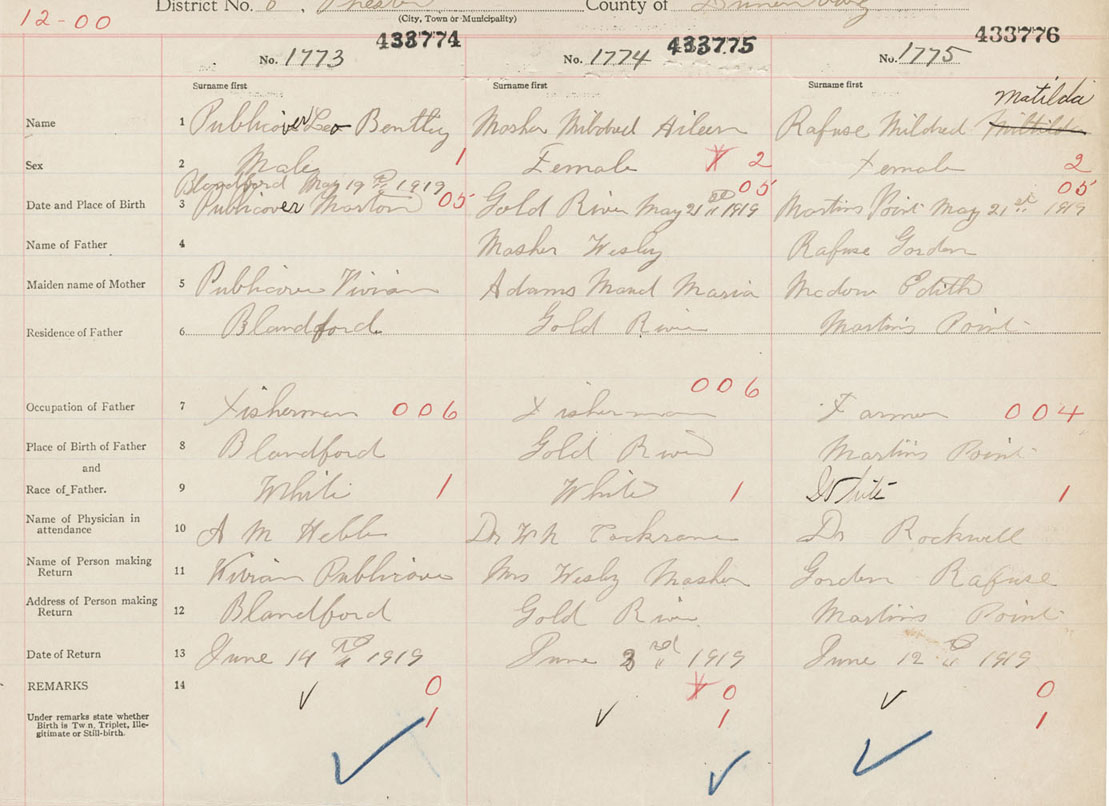 12-00
District No. 6, Chester
County of Lunenburg
(City, Town or Municipality)
433774 433775 433776
No. 1773 No. 1774 No. 1775
Surname first Surname first Surname first
Matilda
Name 1 Publicover Leo Bentley Mosher Mildred Aileen Rafuse Mildred
Sex 2 Male 1 Female X 2 Female 2
Blandford May 19 th 1919 05 05
Date and Place of Birth 3 Publicover Marton 05 Gold River May 21 st 1919 Martins Point May 21 st 1919
Name of Father 4 Mosher Wesley Rafuse Gorden
Maiden name of Mother 5 Publicover Vivian Adams Maud Maria Edith
Residence of Father 6 Blandford Gold River Martins Point
006
Occupation of Father 7 Fisherman 006 Fisherman Farmer 004
Place of Birth of Father 8 Blandford Gold River Martins Point
and
Race of Father. 9 White 1 White 1 White 1
Name of Physician in
attendance 10 A M Hebb Dr W N Cockrane Dr Rockwell
Name of Person making
Return 11 Vivian Publicover Mrs Wesley Mosher Gorden Rafuse
Address of Person making
Return 12 Blandford Gold River Martins Point
Date of Return 13 June 14 th 1919 June 1919 June 12 th 1919
REMARKS 14 ✓ 0 X 0 ✓ 0
Under remarks state whether
Birth is Twin, Triplet, Ille-
gitimate or Still-birth. 1 ✓ 1 1